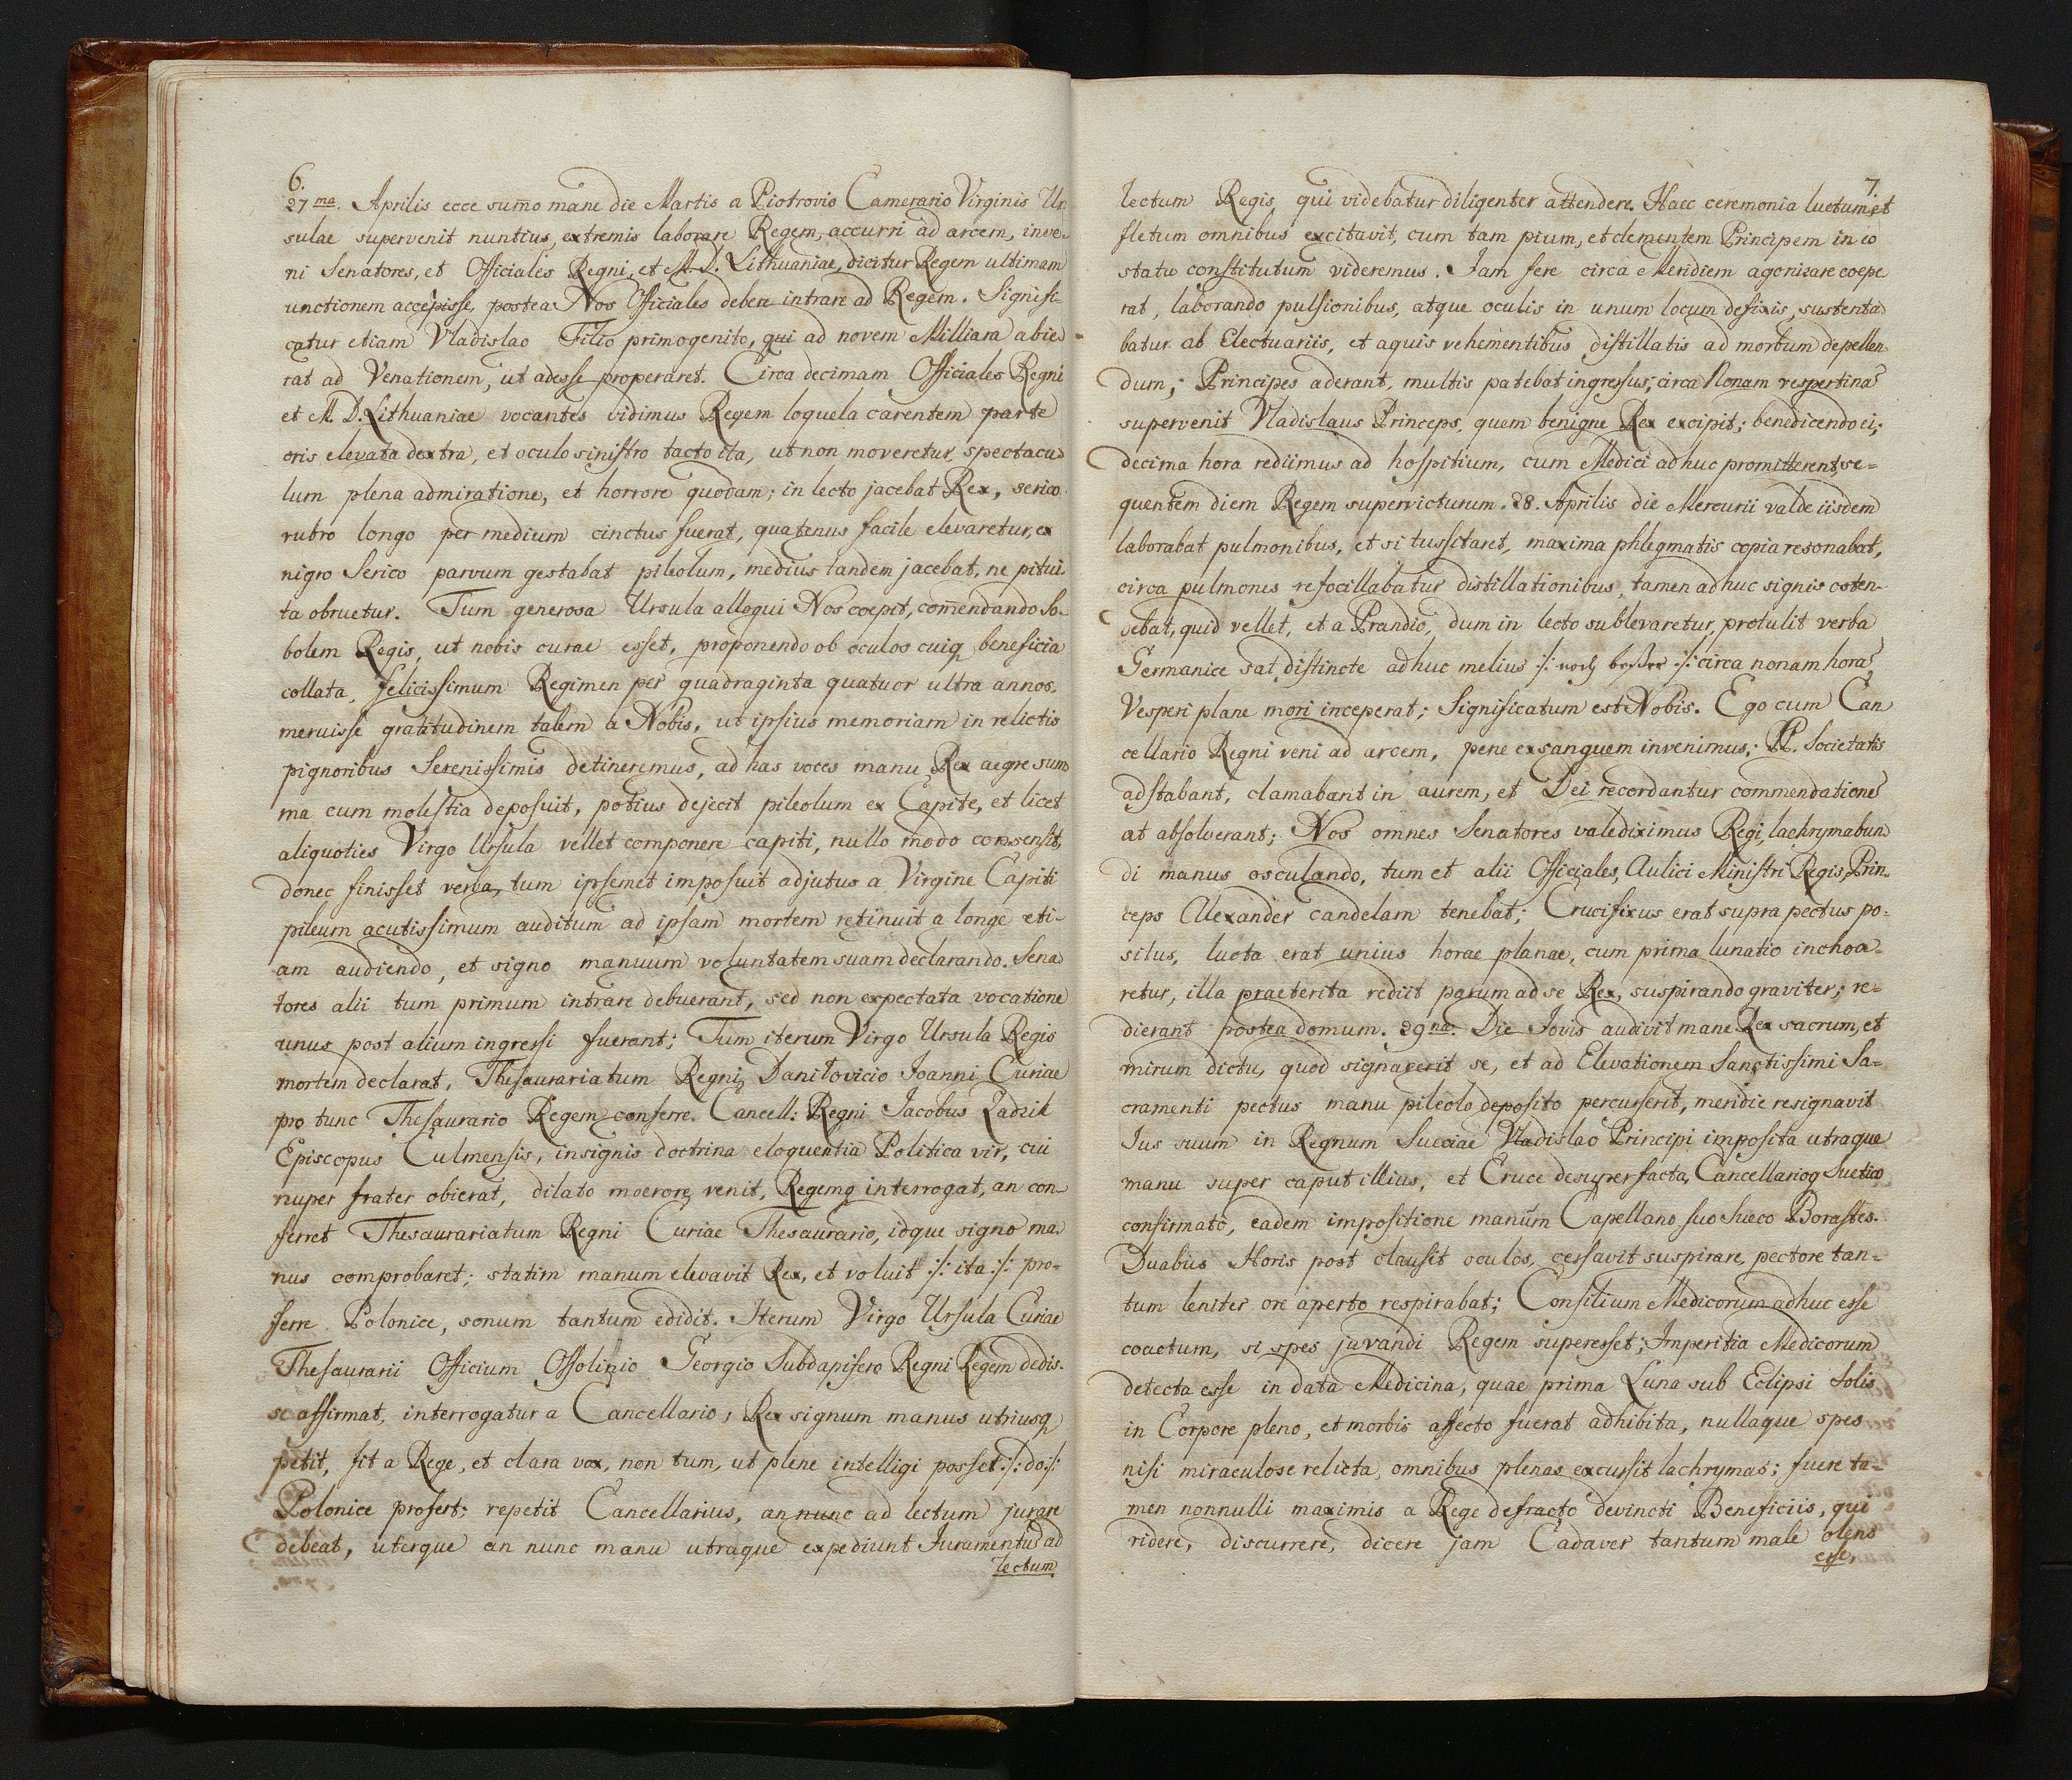 6.
27ma. Aprilis ecce sum̅o mane die Martis a Piotrovio Camerario Virginis Ur
sulae supervenit nuntius, extremis laborare Regem, accurri ad arcem, inve-
ni Senatores, et Officiales Regni, et M. D. Lithuaniae, dicitur Regem ultimam
unctionem accepisse, postea Nos Officiales debere intrare ad Regem. Signifi-
catur etiam Vladislao Filio primogenito, qui ad novem Milliara abie-
rat ad Venationem, ut adesse properaret. Circa decimam Officiales Regni
et M. D. Lithuaniae vocantes vidimus Regem loquela carentem parte
oris elevata dextra, et oculo sinistro tacto ita, ut non moveretur, spectacu-
lum plena admiratione, et horrore quodam; in lecto jacebat Rex, serico
rubro longo per medium cinctus fuerat, quatenus facile elevaretur, ex
nigro Serico parvum gestabat pileolum, medius tandem jacebat, ne pitui-
ta obruetur. Tum generosa Ursula alloqui Nos coepit, com̅endando So-
bolem Regis, ut nobis curae esset, proponendo ob oculos cuiq beneficia
collata, felicissimum Regimen per quadraginta quatuor ultra annos.
meruisse gratitudinem talem a Nobis, ut ipsius memoriam in relictis
pignoribus Serenissimis detineremus, ad has voces manu Rex aegre sum
ma cum molestia deposuit, potius dejecit pileolum ex Capite, et licet
aliquoties Virgo Ursula vellet componere capiti, nullo modo consensit,
donec finisset verba, tum ipsemet imposuit adjutus a Virgine Capiti
pileum acutissimum auditum ad ipsam mortem retinuit a longe eti-
am audiendo, et signo manuum voluntatem suam declarando. Sena
tores alii tum primum intrare debuerant, sed non expectata vocatione
unus post alium ingressi fuerant; Tum iterum Virgo Ursula Regis
mortem declarat, Thesaurariatum Regni Daniłovicio Joanni Curiae
pro tunc Thesaurario Regem conferre. Cancell: Regni Jacobus Zadzik
Episcopus Culmensis, insignis doctrina eloquentia Politica vir, cui
nuper frater obierat, dilato moerore venit, Regemq interrogat, an con-
ferret Thesaurariatum Regni Curiae Thesaurario, idque signo ma-
nus comprobaret; statim manum elevavit Rex, et voluit :/: ita :/: pro-
ferre Polonice, sonum tantum edidit. Iterum Virgo Ursula Curiae
Thesaurarii Officium Ossolinio Georgio Subdapifero Regni Regem dedis-
se affirmat, interrogatur a Cancellario, Rex signum manus utriusq
petit, fit a Rege, et clara vox, non tum, ut plene intelligi posset :/: do :/:
Polonice profert; repetit Cancellarius, an nunc ad lectum jurare
debeat, uterque an nunc manu utraque expediunt Juramentum̅ ad
lectum
7.
lectum Regis, qui videbatur diligenter attendere. Haec ceremonia luctum, et
fletum omnibus excitavit, cum tam pium, et clementem Principem in eo
statu constitutum videremus. Jam fere circa Meridiem agonizare coepe
rat, laborando pulsionibus, atque oculis in unum locum defixis, sustenta-
batur ab Electuariis, et aquis vehementibus distillatis ad mortum depellen-
dum; Principes aderant, multis patebat ingressus; circa Nonam vespertina̅
supervenit Vladislaus Princeps, quem benigne Rex excipit; benedicendo ei;
decima hora rediimus ad hospitium, cum Medici adhuc promitterent, se=
quentem diem Regem supervicturum. 28. Aprilis die Mercurii valde iisdem
laborabat pulmonibus, et si tussitaret, maxima phlegmatis copia resonabat,
circa pulmones refocillabatur distillationibus, tamen adhuc signis osten-
debat, quid vellet, et a Prandio, dum in lecto sublevaretur, protulit verba
Germanice sat distincte adhuc melius :/: noch besser :/: circa nonam hora̅
Vesperi plane mori inceperat; Significatum est Nobis. Ego cum Can
cellario Regni veni ad arcem, pene exsanguem invenimus; PP. Societatis
adstabant, clamabant in aurem, et Dei recordantur commendatione̅
at absolverant; Nos omnes Senatores valediximus Regi, lachrymabun
di manus osculando, tum et alii Officiales, Aulici Ministri Regis, Prin-
ceps Alexander candelam tenebat; Crucifixus erat supra pectus po-
situs, lucta erat unius horae planae, cum prima lunatio inchoa-
retur, illa praeterita rediit parum ad se Rex, suspirando graviter; re-
dierant postea domum. 29na. Die Jovis audivit mane Rex sacrum, et
mirum dictu, quod signaverit se, et ad Elevationem Sanctissimi Sa-
cramenti pectus manu pileolo deposito percusserit, meridie resignavit
Jus suum in Regnum Sueciae Vladislao Principi imposita utraque
manu super caput illius, et Cruce desuper facta, Cancellarioq Suetico
confirmato, eadem impositione manu̅m Capellano suo Sueco Borastes.
Duabus Horis post clausit oculos, cessavit suspirare, pectore tan=
tum leniter ore aperto respirabat; Consilium Medicorum adhuc esse
coactum, si spes juvandi Regem superesset; Imperitia Medicorum
detecta esse in data Medicina, quae prima Luna sub Eclipsi Solis
in Corpore pleno, et morbis affecto fuerat adhibita, nullaque spes
nisi miraculose relicta, omnibus plenas excussit lachrymas; fuere ta=
men nonnulli maximis a Rege defracto devincti Beneficiis, qui
ridere, discurrere, dicere jam Cadaver tantum male olens
esse,